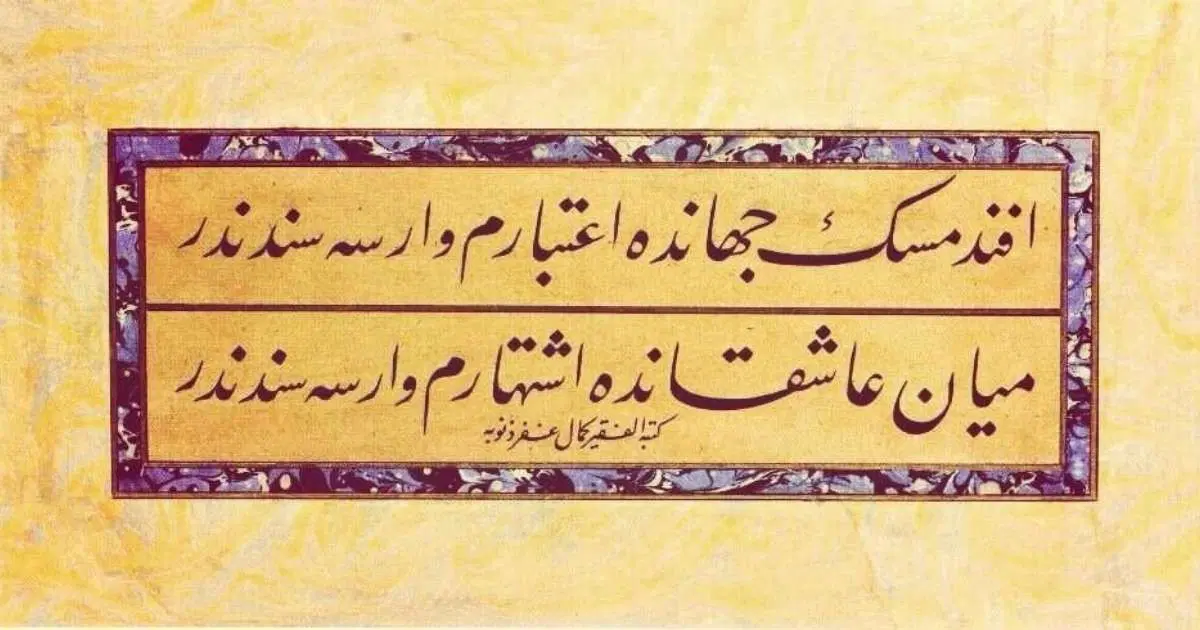 افندمسڭ جهانده اعتبارم وارسه سندندر
میان عاشقانده اشتهارم وارسه سندندر
کتبه الفقیر کمال غفر ذنوبه